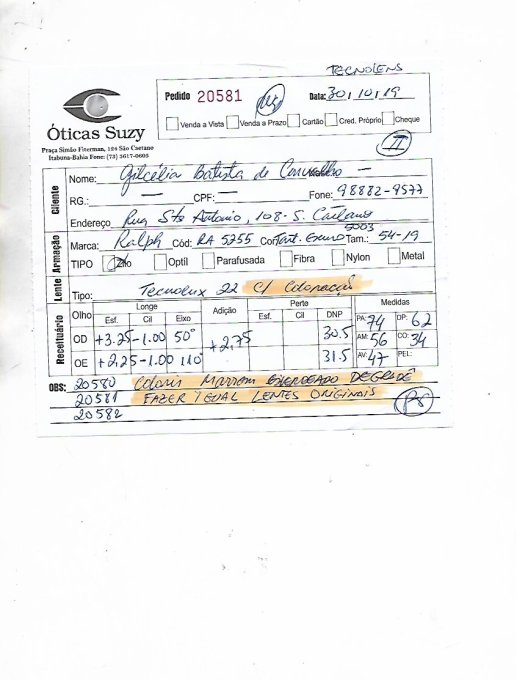 TECNOLENS
Pedido 20581 Data: 30/10/19
Venda a Vista Venda a Prazo Cartão Cred. Próprio Cheque
Óticas Suzy
Praça Simão Fiterman, 124 São Caetano
Itabuna-Bahia Fone: (73) 3617-0603
II
Cliente
Nome: Gilcélia Batista de Carvalho
RG.: — CPF: — Fone: 98882-9577
Endereço Rua Sto Antonio, 108 - S. Caetano
Armação
5003
Marca: Ralph Cód: RA 5255 Cor: Tart. Tam.: 54-19
TIPO Zilo Optil Parafusada Fibra Nylon Metal
Lente
Tipo: Tecnolux 22 C/ Coloração
Receituário
Olho Longe Adição Perto Medidas
Esf. Cil Eixo Esf. Cil DNP
OD +3.25 -1.00 50° +2,75 30.5 PA: 74 DP: 62
AM: 56 CO: 34
OE +2,25 -1.00 110° 31.5 AV: 47 PEL:
OBS: 20580 Coloris Marrom DEGRADÊ
20581 FAZER IGUAL LENTES ORIGINAIS
20582